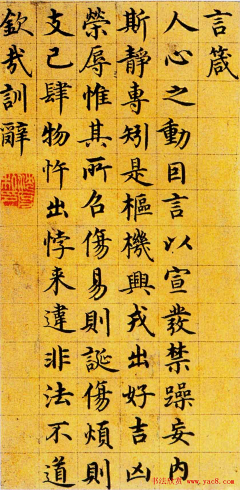 言箴
人心之動因言以宣發禁躁妄内
斯靜專矧是樞機興戎出好吉凶
榮辱惟其所召傷易則誕傷煩則
支己肆物忤出悖来違非法不道
欽哉訓辭
书法欣赏 www.yac8.com